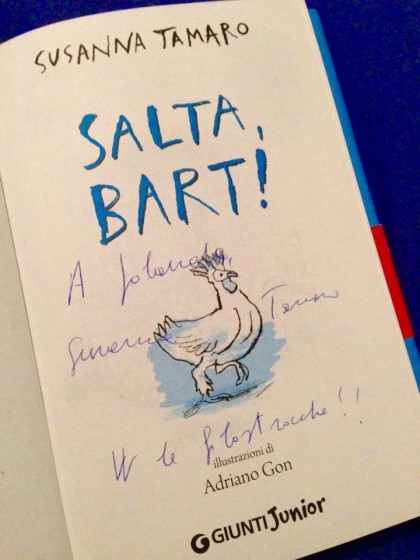 SUSANNA TAMARO
SALTA,
BART!
A Jolanda,
Susanna Tamaro
W le filastrocche!!
illustrazioni di
Adriano Gon
GIUNTI Junior